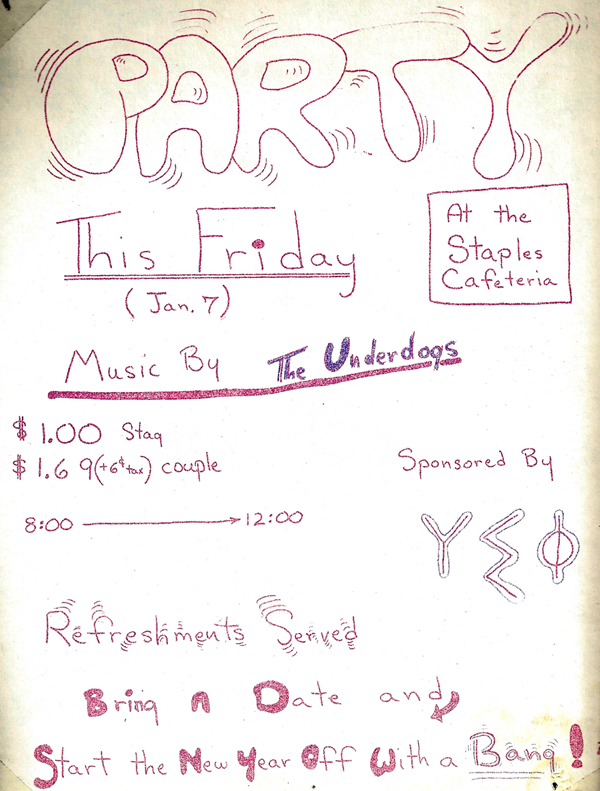 PARTY
This Friday
(Jan. 7)
At the
Staples
Cafeteria
Music By The Underdogs
$ 1.00 Stag
$ 1.69 (+6¢ tax) couple
8:00 → 12:00
Sponsored By
ΥΣΦ
Refreshments Served
Bring A Date and
Start the New Year Off With a Bang!